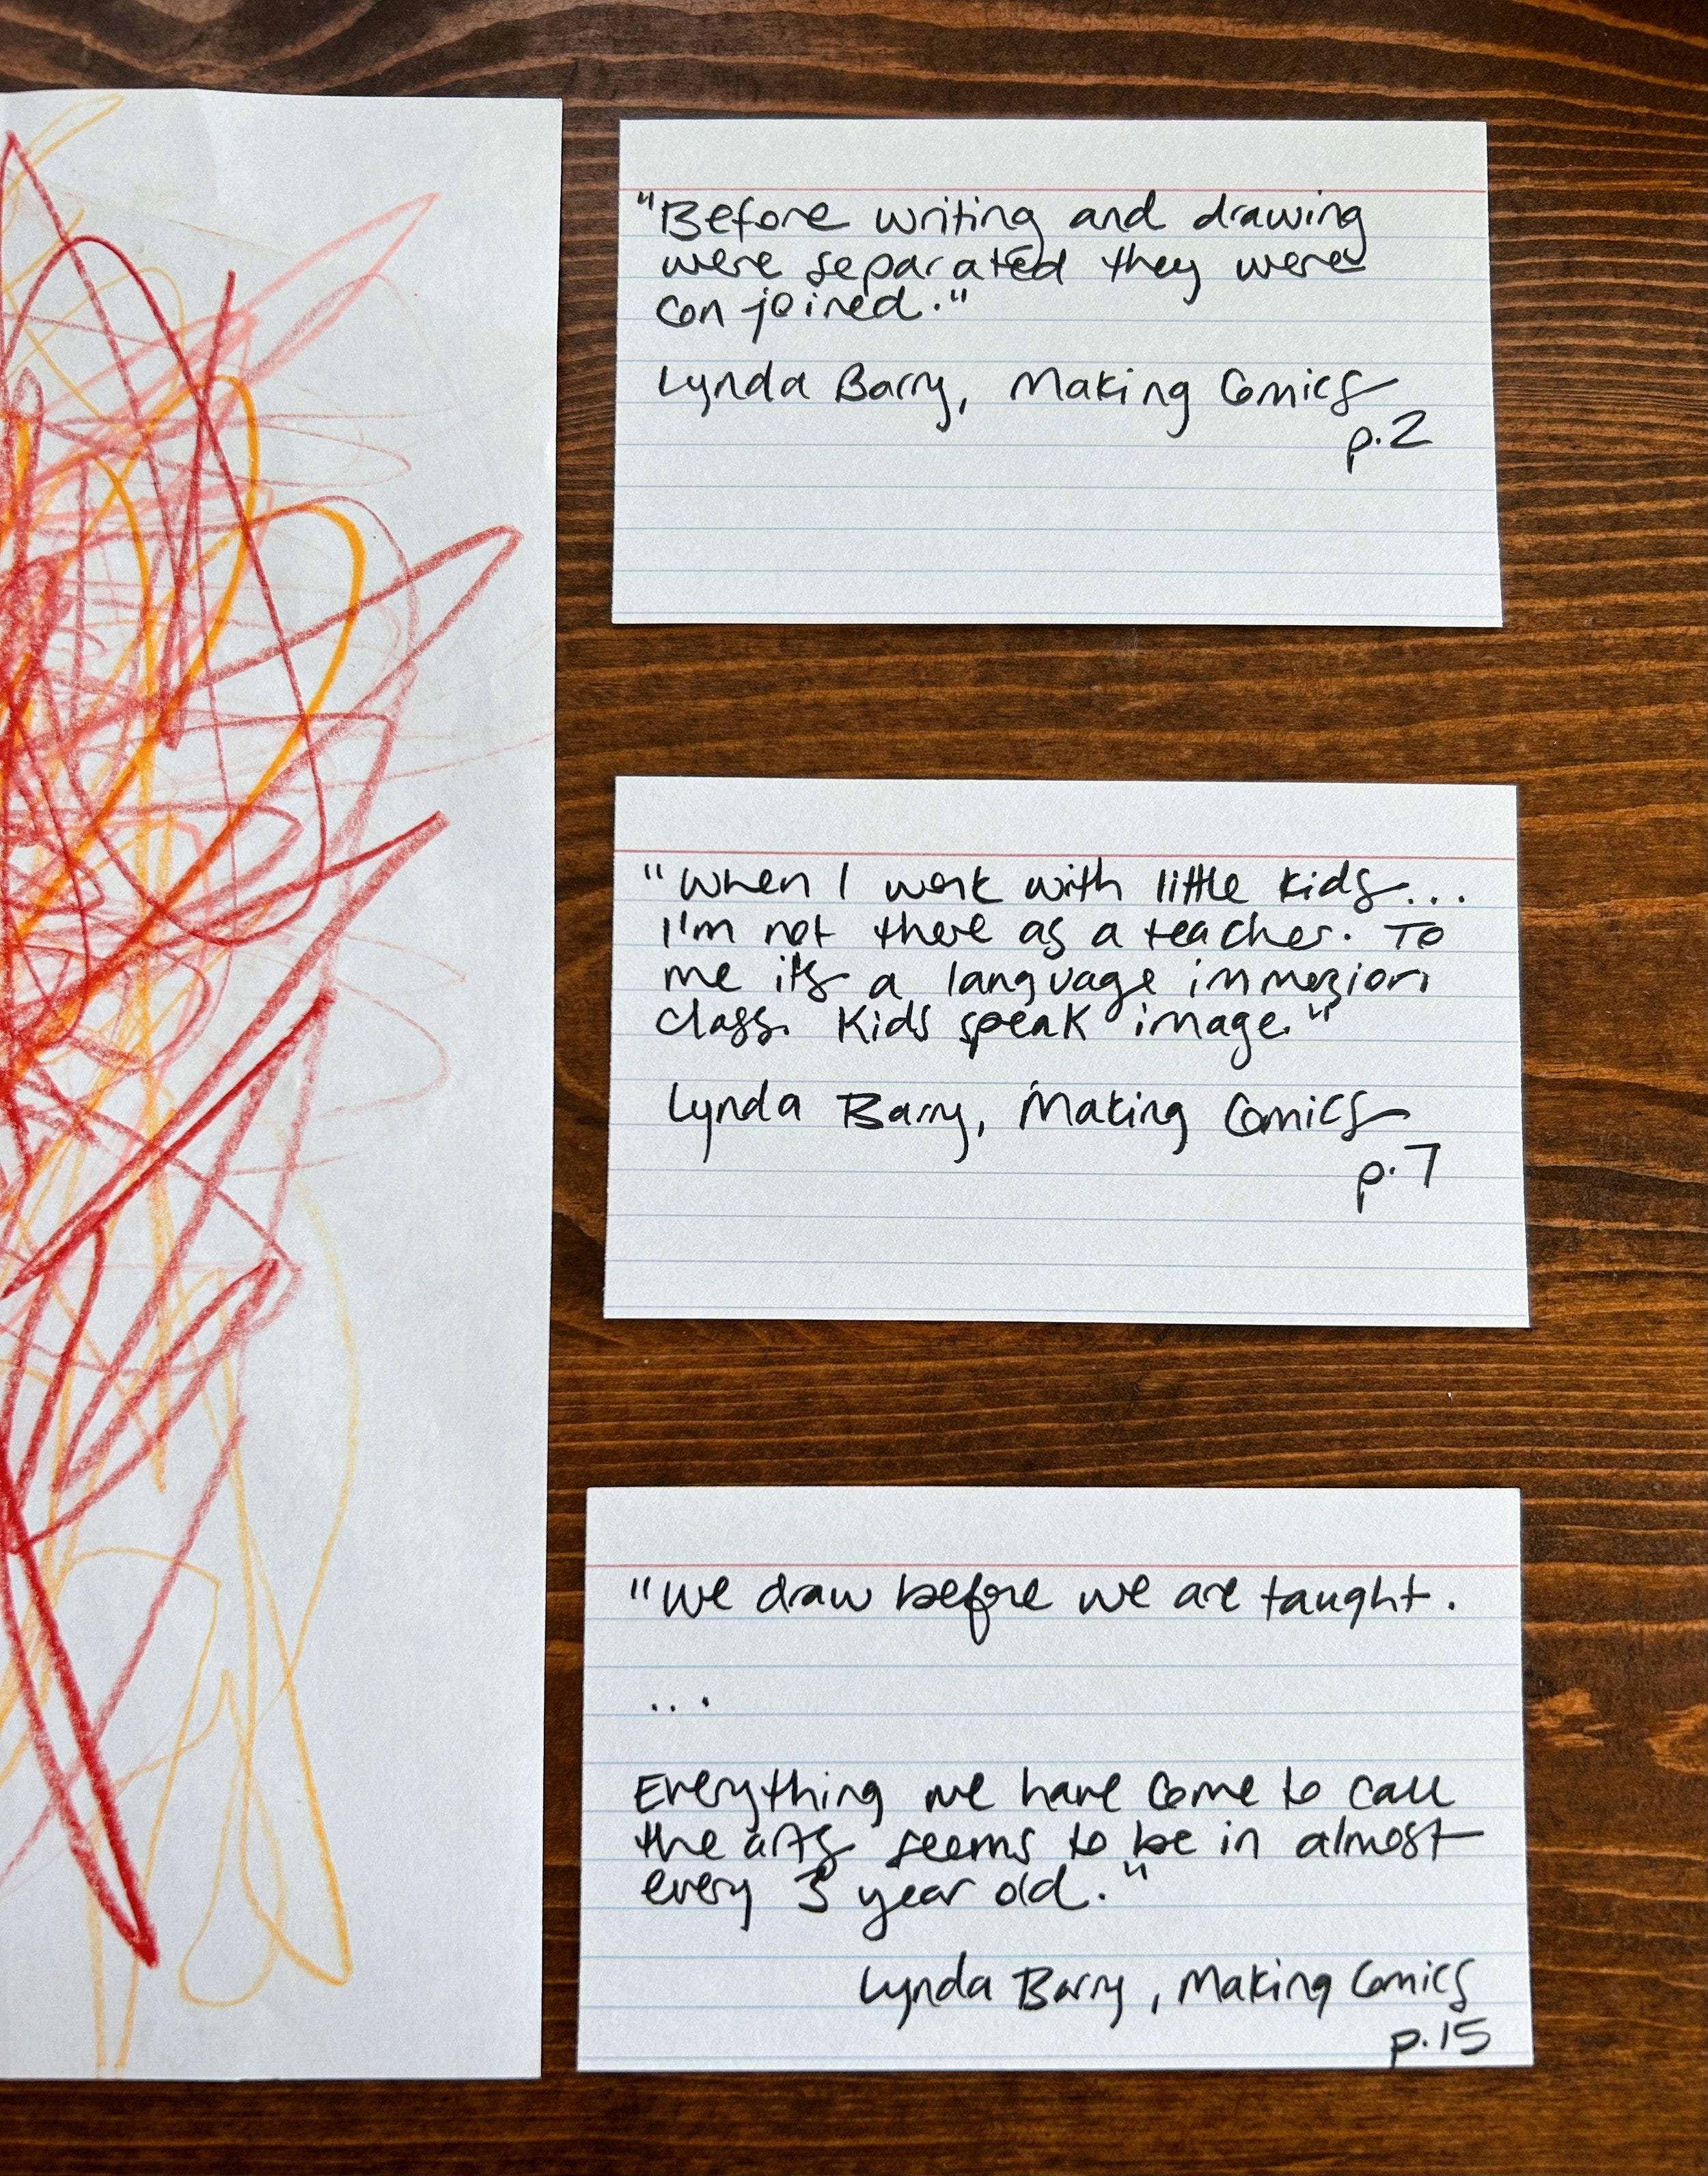 "Before writing and drawing
were separated they were
conjoined."
Lynda Barry, Making Comics
p.2
"When I work with little kids...
I'm not there as a teacher. To
me it's a language immersion
class. Kids speak image."
Lynda Barry, Making Comics
p.7
"We draw before we are taught.
...
Everything we have come to call
the arts seems to be in almost
every 3 year old."
Lynda Barry, Making Comics
p.15